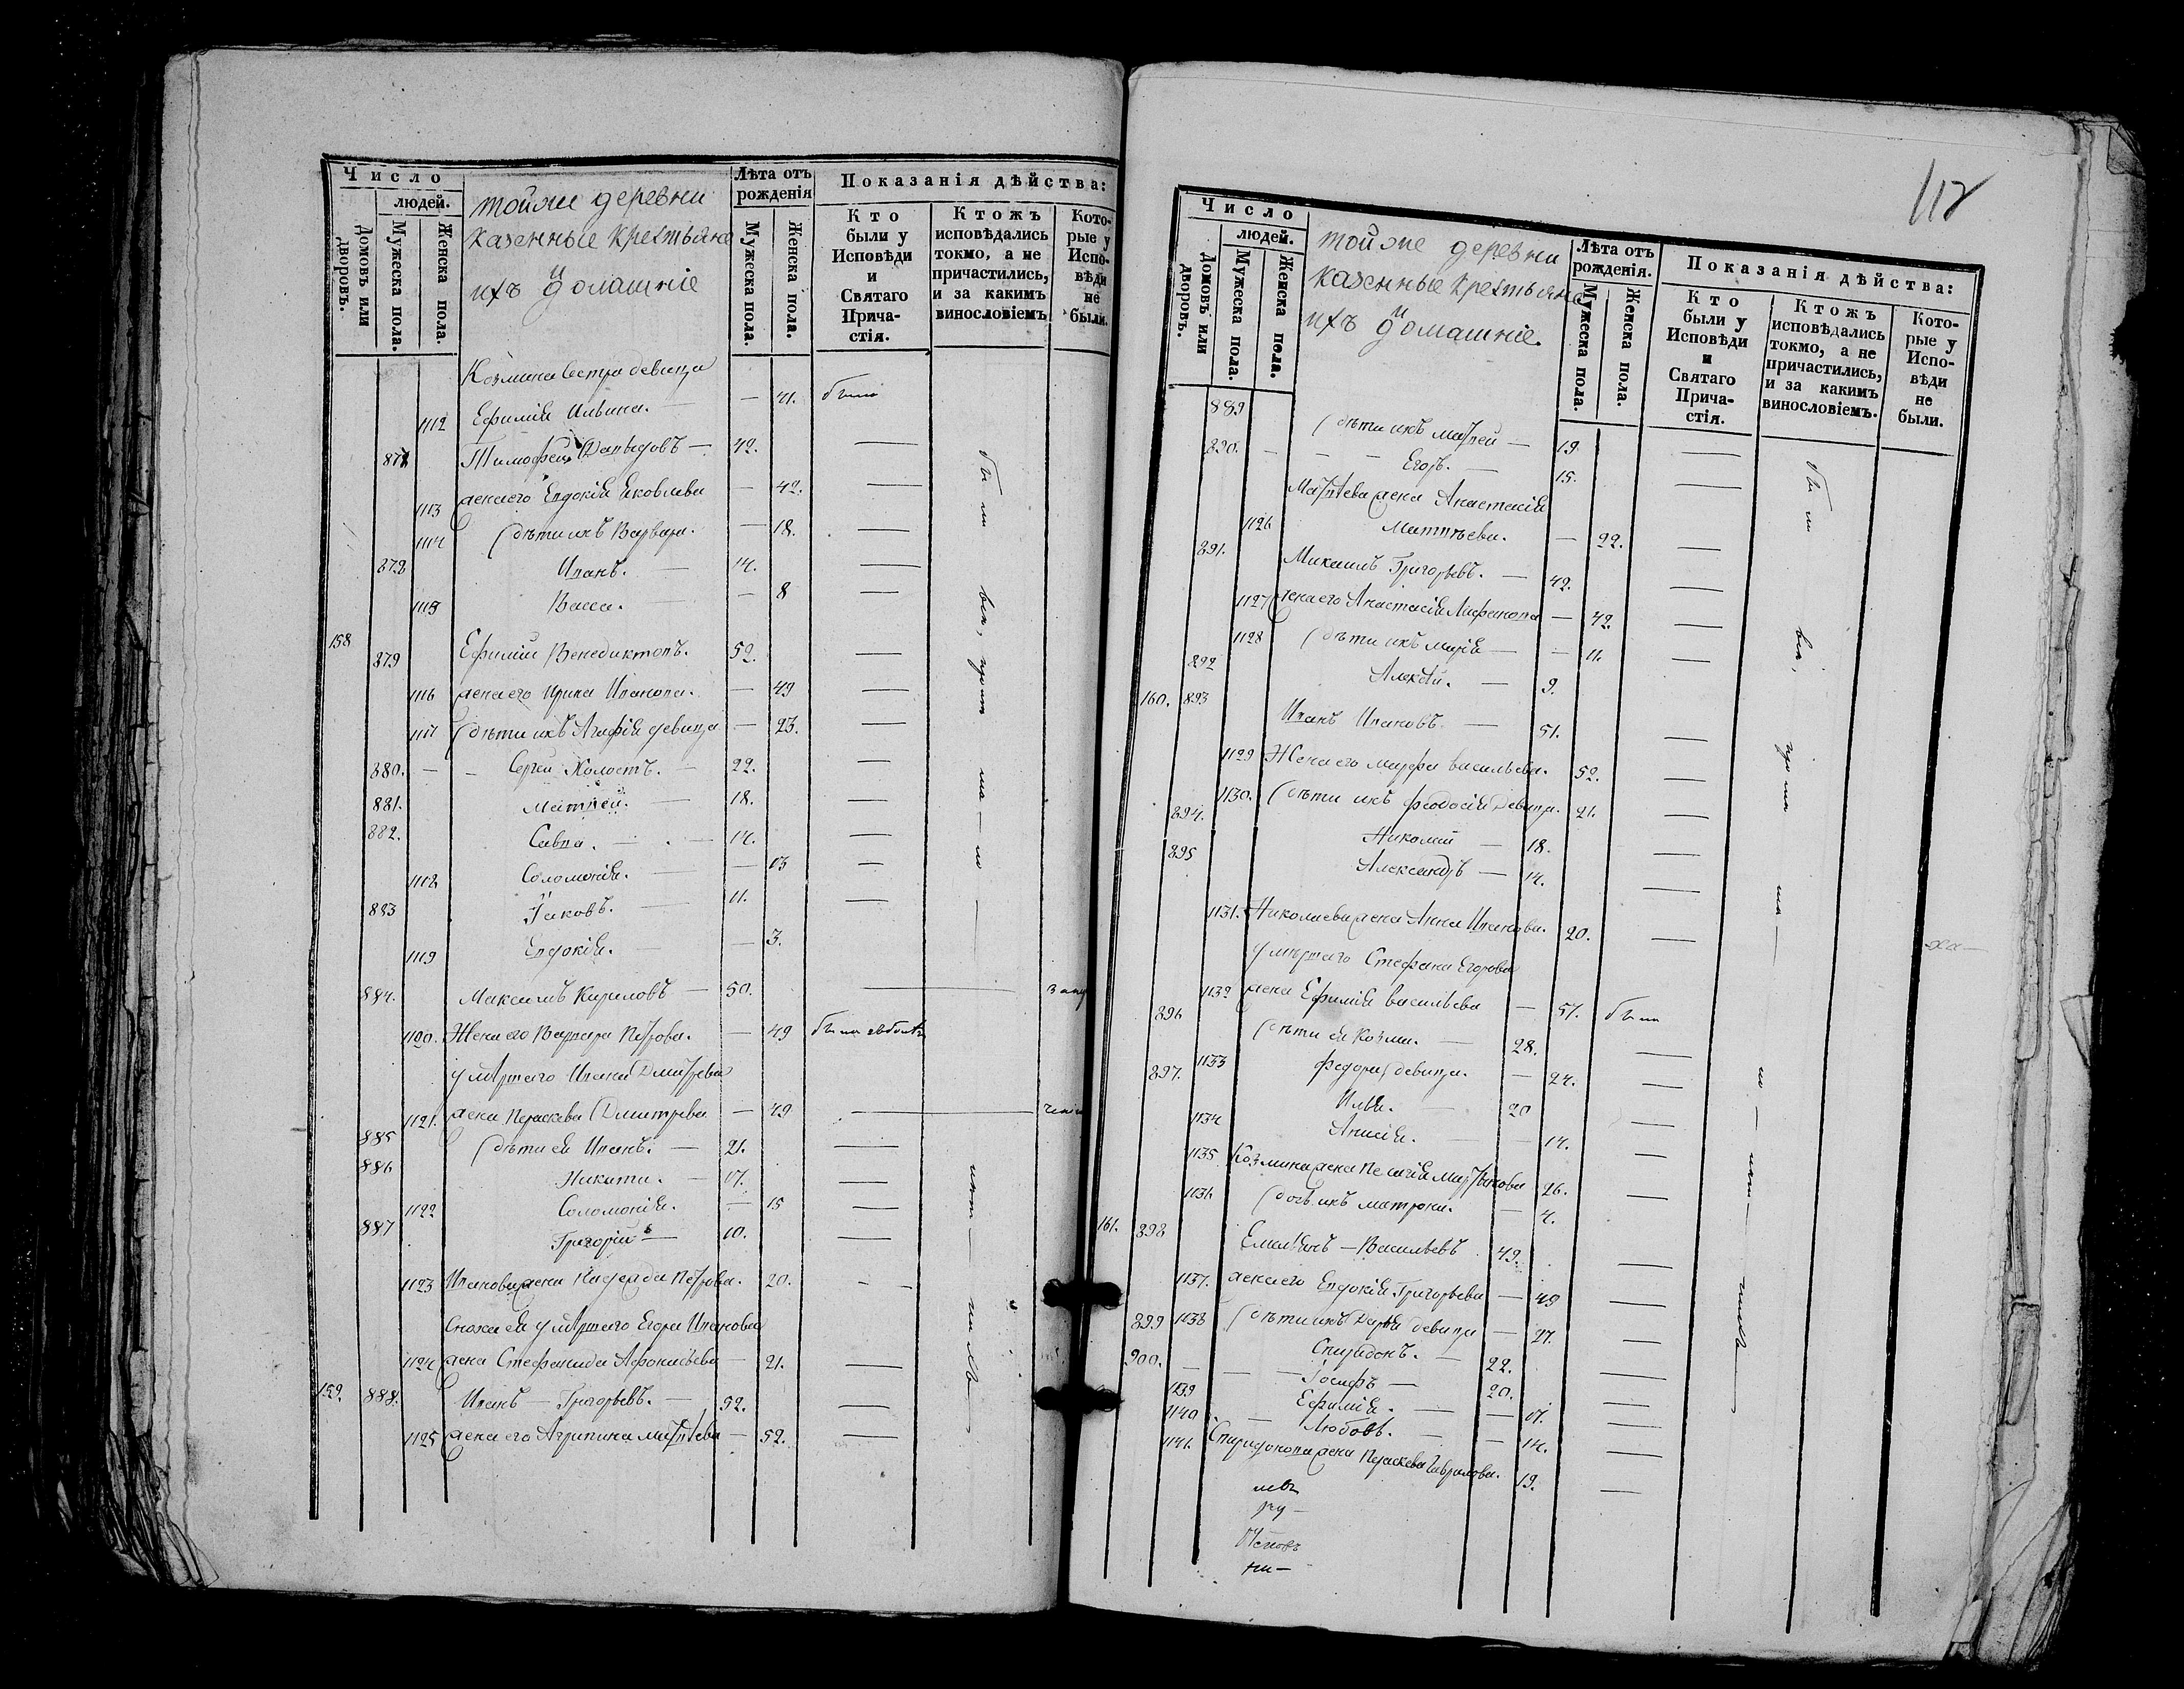 Число
людей.
Домовъ или дворовъ.
Мужеска пола.
Женска пола.
тойже деревни
казенные крестьяне
и
ихъ домашніе
Лѣта отъ рожденія
Мужеска пола.
Женска пола.
Показанія дѣйства:
Кто были у Исповѣди и Святаго Прича-стія.
Ктожъ исповѣдались токмо, а не причастились, и за какимъ винословіемъ
Кото-рые у Испо-вѣди не были.
Козмина сестра девица
1112 Ефимія Ильина. — — 41. была
877 Тимофей Давыдовъ — 42. —
1113 жена его Евдокія Яковлева — 42. —
1114 дѣти ихъ Варвара. — 18. —
878 Иванъ. — 14. —
1115 Васса. — — 8 —
158 879 Ефимій Венедиктовъ. 52. —
1116 жена его Ирина Иванова. — 49 —
1117 дѣти ихъ Агафія девица — 23. —
880. — — Сергей Холостъ. — 22. —
881. Матвей. — 18. —
882. Савва. — — 14. —
1118 Соломонія. — — 13 —
883 Іаковъ. — 11. —
1119 Евдокія. — — 3.
884. Максимъ Кириловъ — 50. —
1120. Жена его Варвара Петрова. — 49 была
умершаго Ивана Дмитрева
1121. жена Параскева Дмитрева — 49 —
885 дѣти ея Иванъ. — 21. —
886 Никита. — 17. —
1122 Соломонія. — 15 —
887 Григорій — 10. —
1123 Иванова жена Петрова. 20. —
Сноха ея умершаго Егора Иванова
1124 жена Стефанида Афонасьева — 21. —
159. 888. Иванъ — Григорьевъ. — 52. —
1125 жена его Агрипина Матвѣева — 52. —
112
Число
людей.
Домовъ или дворовъ.
Мужеска пола.
Женска пола.
тойже деревни
казенные крестьяне
и
ихъ домашніе.
Лѣта отъ рожденія.
Мужеска пола.
Женска пола.
Показанія дѣйства:
Кто были у Исповѣди и Святаго Прича-стія.
Ктожъ исповѣдались токмо, а не причастились, и за какимъ винословіемъ.
Кото-рые у Испо-вѣди не были.
889 дѣти ихъ Матвей — 19 —
890. — — — Егоръ. — 15. —
Матвѣева жена Анастасія
1126 Матвѣева. — 22. —
891. Михаилъ Григорьевъ. — 42. —
1127 жена его Анастасія — 42. —
1128 дѣти ихъ Марія — — 11. —
892 Алексѣй. — 9.
160. 893 Иванъ Ивановъ — 51. —
1129 Жена его Марфа Васильева. 52. —
1130. дѣти ихъ Феодосія девица. 21. —
894. Николай — 18. —
895 Александръ — 14. —
1131. Николаева жена Анна Иванова. 20. —
умершаго Стефана Егорова
1132 жена Ефимія Васильева — 57. была
896 дѣти ея Козма. — 28. —
1133 Федора девица. — 24. —
897. Илья. — 20 —
1134 Анисія. — — 14. —
1135 Козмина жена Пелагія 26. —
1136 дочь ихъ Матрона. — 4.
161. 898 Емельянъ — Васильевъ 49. —
1137. жена его Евдокія Григорьева — 49 —
1138 дѣти ихъ Дарья девица — 27. —
899 Спиридонъ. — 22. —
900. — — — Іосифъ — 20. —
1139 Ефимія. — — 17. —
1140 — Любовь. — — 14. —
1141. Спиридонова жена Параскева Гаврилова. 19. —